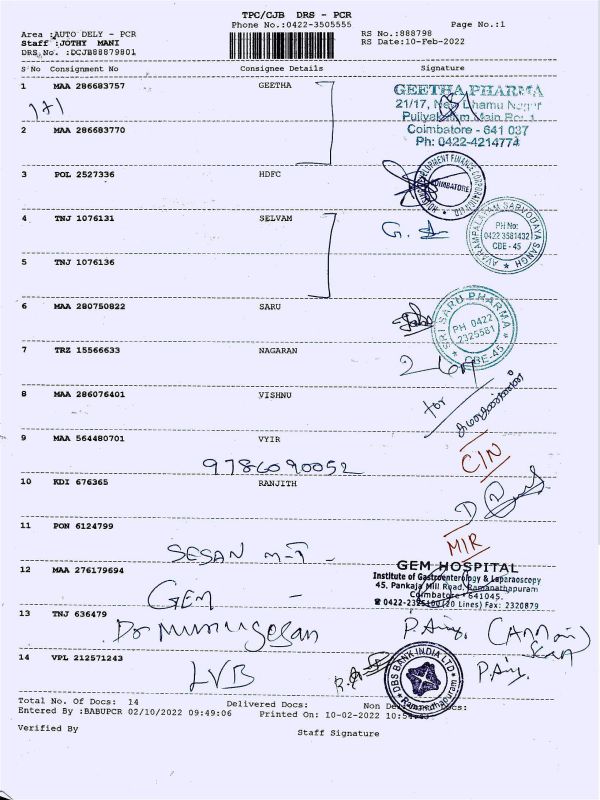 TPC/CJB DRS - PCR
Phone No.:0422-3505555
Page No.:1
Area :AUTO DELY - PCR
RS No.:888798
Staff :JOTHY MANI
RS Date:10-Feb-2022
DRS No. :DCJB88879801
S No Consignment No Consignee Details Signature
1 MAA 286683757 GEETHA
GEETHA PHARMA
Coimbatore - 641 037
Ph: 0422-4214774
2 MAA 286683770
3 POL 2527336 HDFC
COIMBATORE
4 TNJ 1076131 SELVAM
AVARAMPALAYAM SARVODAYA SANGH
PH No:
0422 3581432
CDE - 45
5 TNJ 1076136
6 MAA 280750822 SARU
SRI SARU PHARMA
PH 0422
2325581
CBE-45
7 TRZ 15566633 NAGARAN
8 MAA 286076401 VISHNU
for
9 MAA 564480701 VYIR
9786090052
CIN
10 KDI 676365 RANJITH
11 PON 6124799
MIR
SESAN M-T -
12 MAA 276179694
GEM HOSPITAL
Institute of Gastroenterology & Laparaoscopy
45, Pankaja Mill Road, Ramanathapuram
Coimbatore - 641045.
GEM -
13 TNJ 636479
Dr Murugesan
14 VPL 212571243
LVB
DBS BANK INDIA LTD
Total No. Of Docs: 14 Delivered Docs:
Entered By :BABUPCR 02/10/2022 09:49:06 Printed On: 10-02-2022
Verified By
Staff Signature